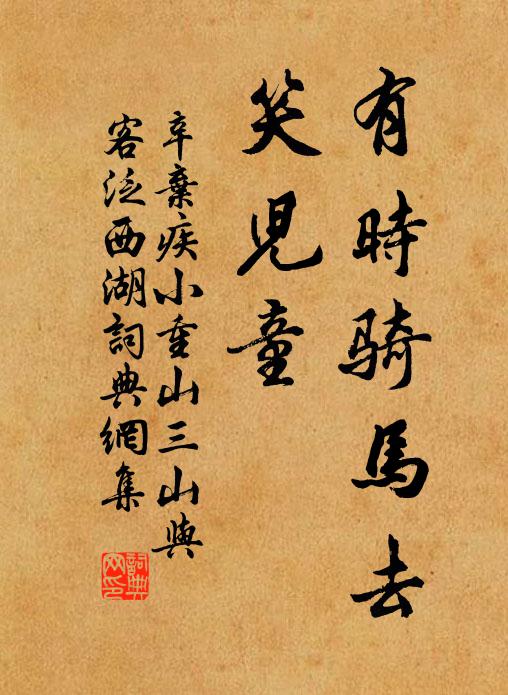 有時騎馬去
笑児童
辛棄疾小重山三山與
客泛西湖詞典網集
詞典
网印